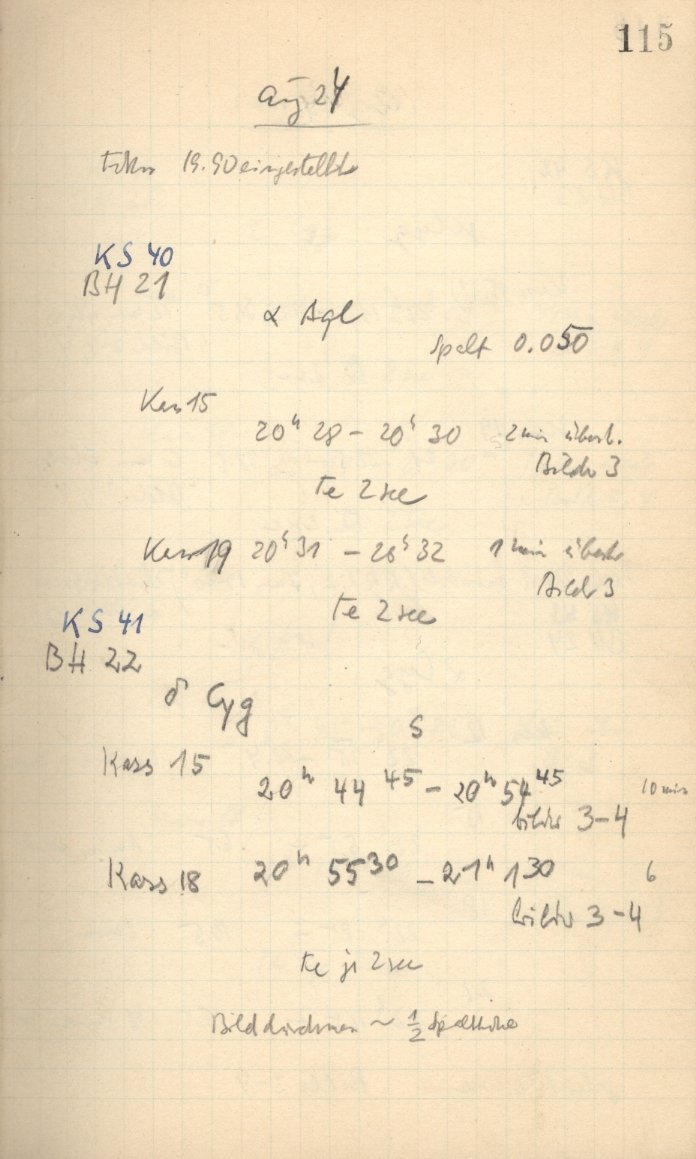 115
Aug 24
Fokus 19.90 eingestellt
KS 40
BH 21
α Aql
Spalt 0.050
Kass 15
20ʰ 28 – 20ʰ 30 2 min überl.
Bilder 3
te 2 sec
Kass 19 20ʰ 31 – 20ʰ 32 1 min
Bilder 3
te 2 sec
KS 41
BH 22
δ Cyg
S
Kass 15
20ʰ 44 ⁴⁵ – 20ʰ 54 ⁴⁵ 10 min
bilder 3–4
Kass 18 20ʰ 55 ³⁰ – 21ʰ 1 ³⁰ 6
bilder 3–4
te je 2 sec
~ 1/2 Spalthöhe